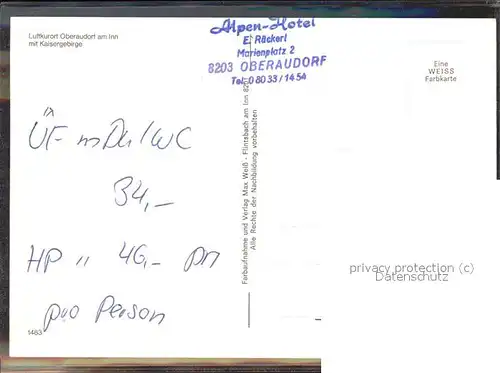 Luftkurort Oberaudorf am Inn
mit Kaisergebirge
Alpen-Hotel
E. Rückerl
Marienplatz 2
8203 OBERAUDORF
Tel. 08033/1454
Eine
WEISS
Farbkarte
ÜF m Du/WC
34,-
HP " 46,- DM
pro Person
Farbaufnahme und Verlag Max Weiß - Flintsbach am Inn 820
Alle Rechte der Nachbildung vorbehalten
privacy protection (c)
Datenschutz
1483